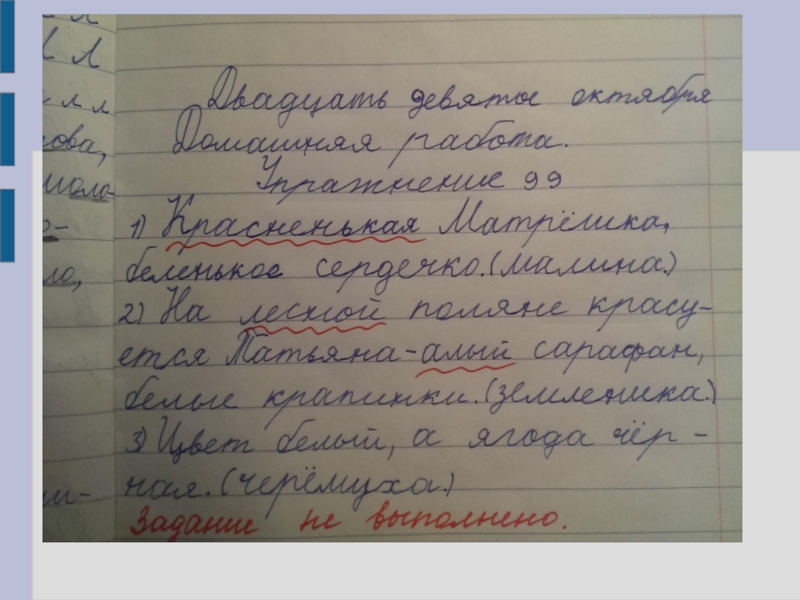 л
Л Л
л л л
Двадцать девятое октября
Домашняя работа.
Упражнение 99
ова,
1) Красненькая Матрёшка,
беленькое сердечко. (малина.)
ло,
2) На лесной поляне красу-
ется Татьяна - алый сарафан,
белые крапинки. (земленика.)
3) Цвет белый, а ягода чёр-
ная. (черёмуха.)
Задание не выполнено.